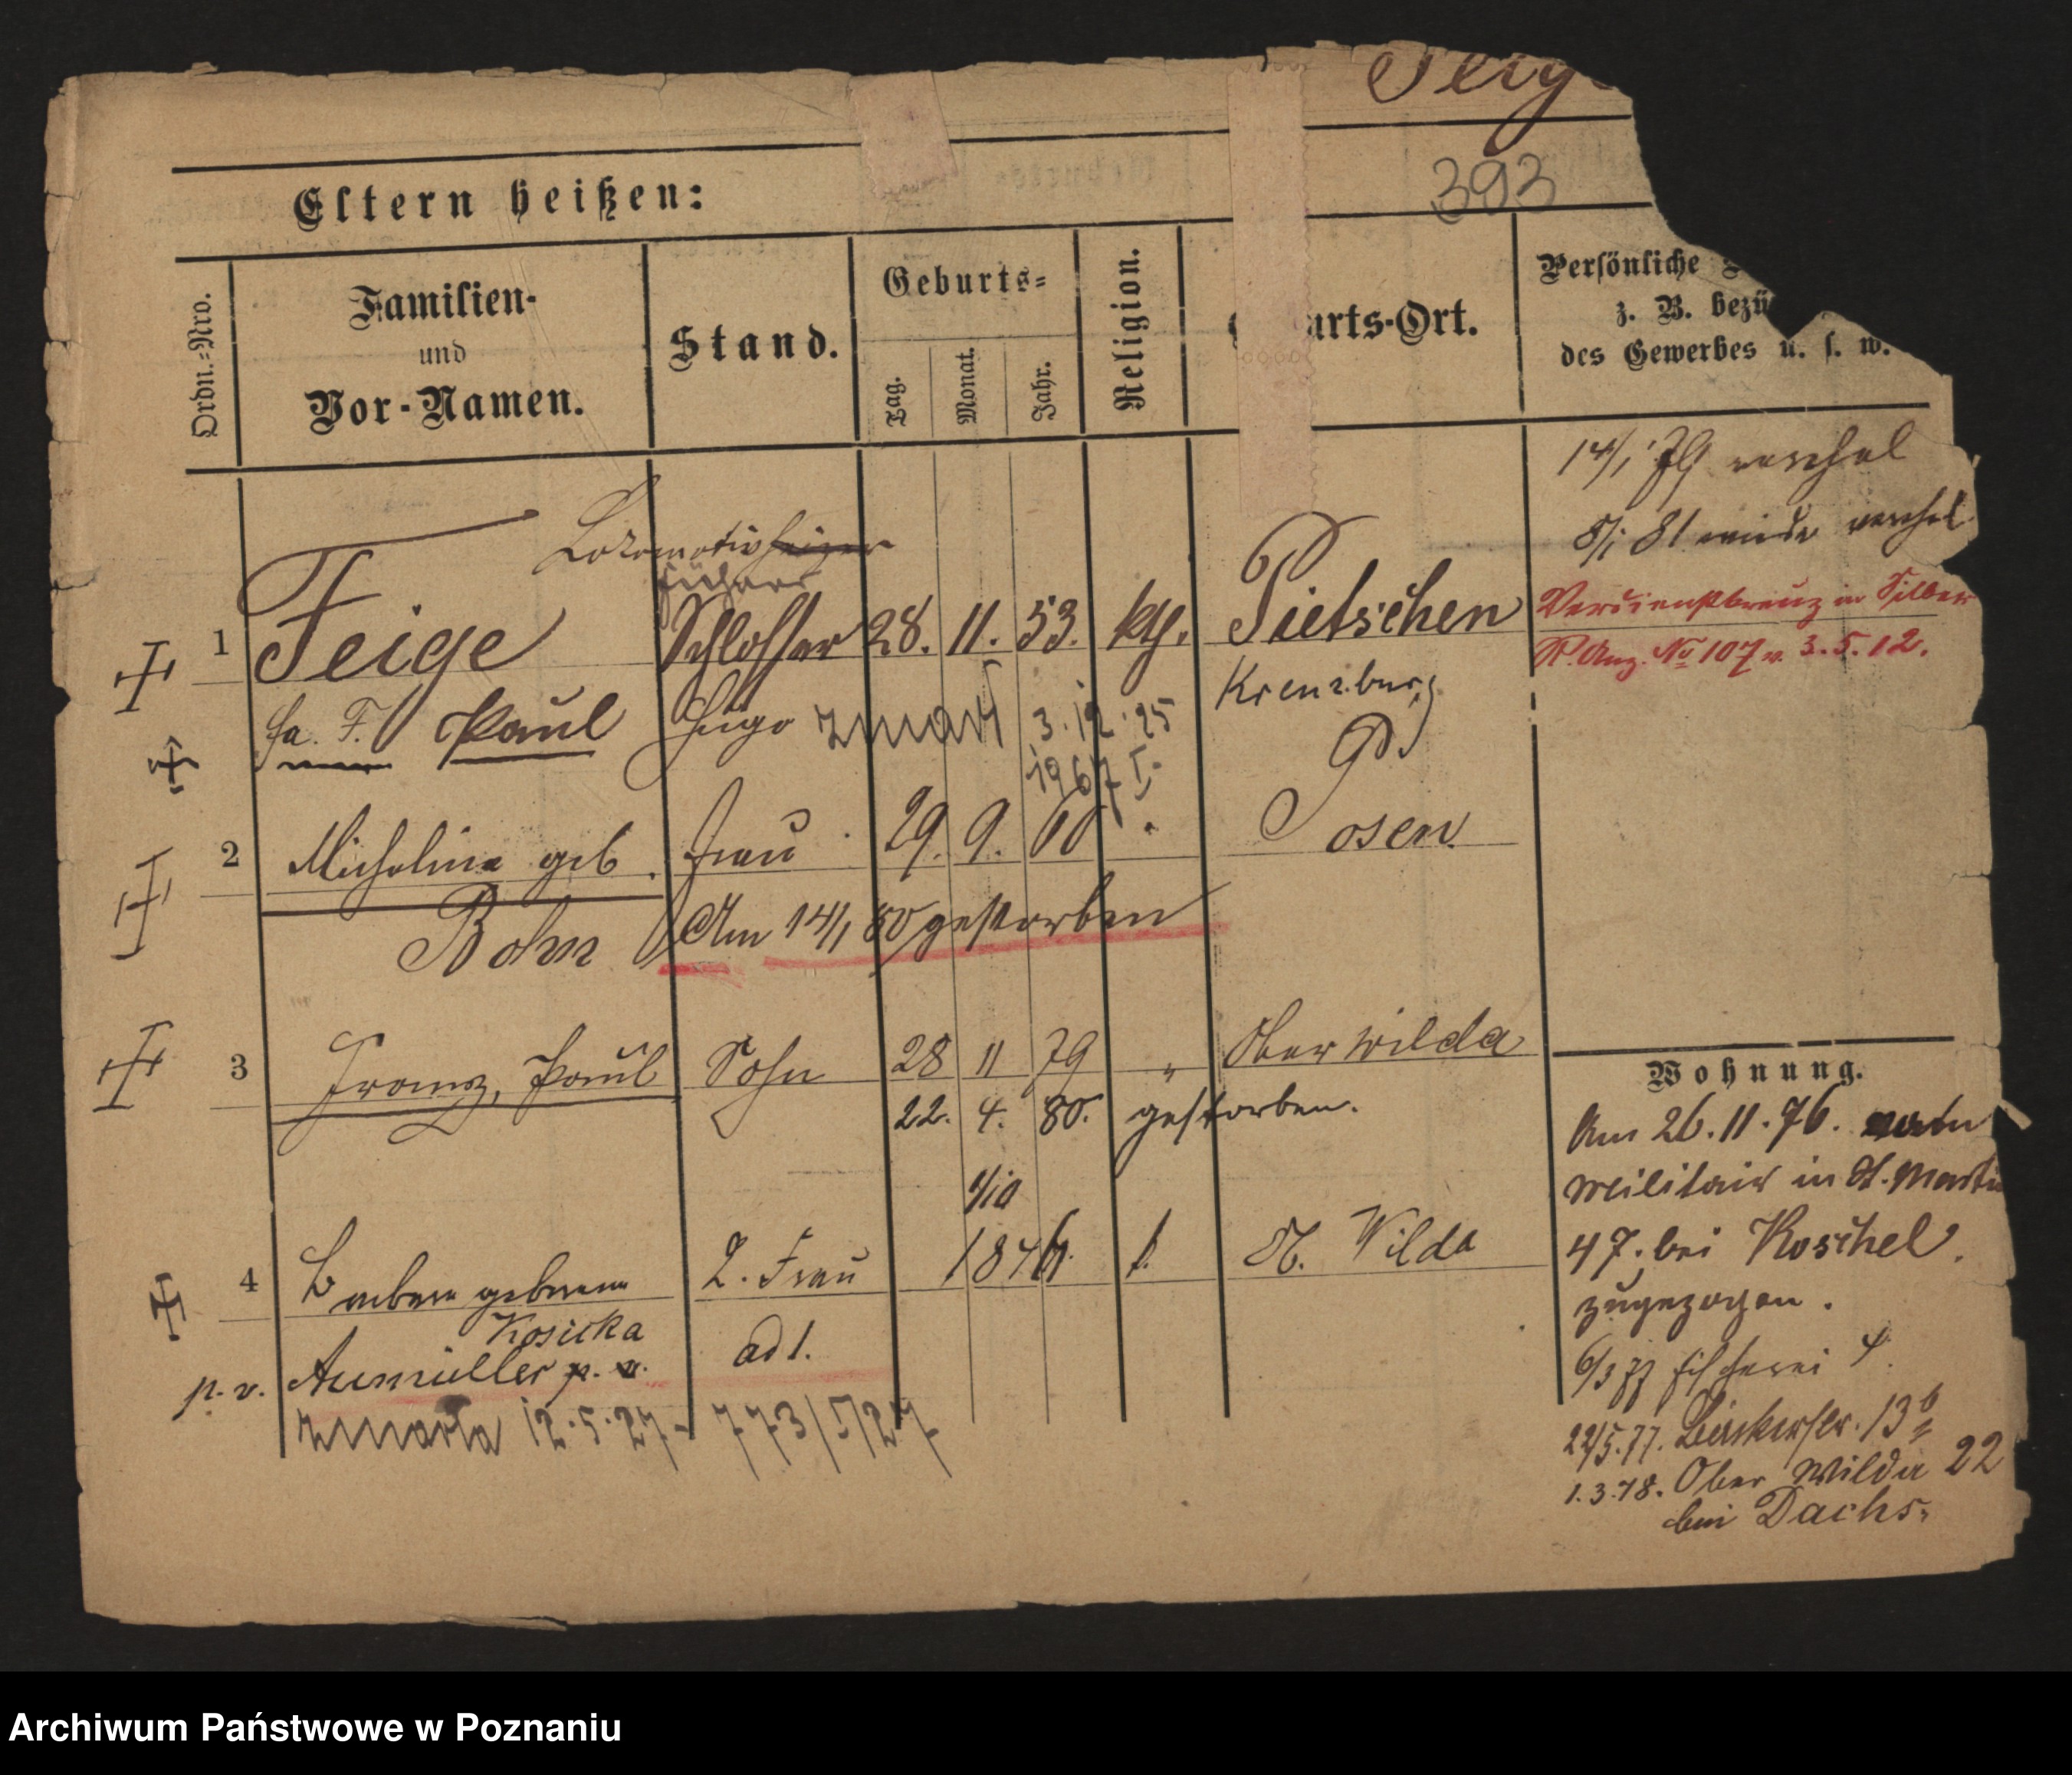 Feige
393
Eltern heißen:
Ordn.=Nro.
Familien-
und
Vor-Namen.
Stand.
Geburts=
Tag.
Monat.
Jahr.
Religion.
urts-Ort.
Persönliche
z. B. bezü
des Gewerbes u. s. w.
14/1 79 verehel
8/1 81 wieder verehel
Verdienstkreuz in Silber
R. Anz. No 107 v. 3.5.12.
Lokomotivheizer
führer
1 Feige Schlosser 28. 11. 53. kth. Pietschen
Kreuzburg
Paul Hugo zmarł 3.12.25
1967 I.
2 Micheline geb. Frau 29. 9. 60 " Posen
Bohn Am 14/1 80 gestorben
3 Franz, Paul Sohn 28 11 79 " Ober Wilda
22. 4. 80. gestorben.
4/10
4 Barbara geborene 2. Frau 1846. k. O. Wilda
Kosicka
p. v. Aumüller p. v. ad 1.
zmarła 12.5.27 - 773/5/27
Wohnung.
Am 26.11.76. vom
Militair in St. Martin
47. bei Koschel
zugezogen.
6/3 77 Fischerei 4.
22/5.77. Bäckerstr. 13b
1.3.78. Ober Wilda 22
bei Dachs.
Archiwum Państwowe w Poznaniu